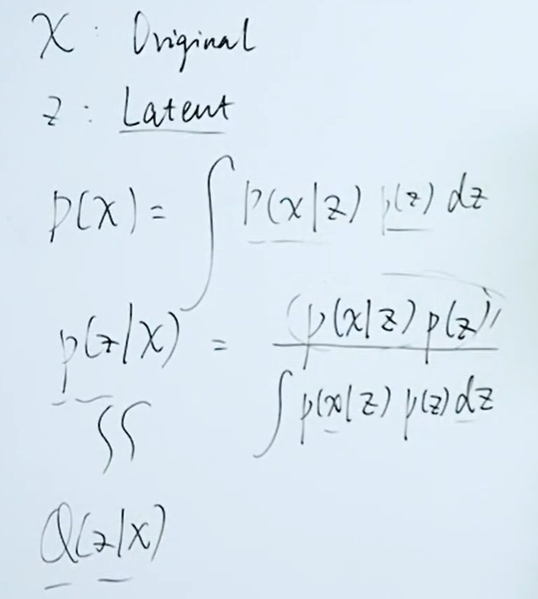 X : Original
z : Latent
p(x) = ∫ p(x|z) p(z) dz
p(z|x) = (p(x|z) p(z))
∫ p(x|z) p(z) dz
≈
Q(z|x)